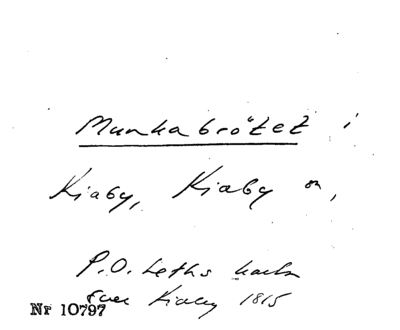 Munkabrötet i
Kiaby, Kiaby sn,
P.O. Leths karta
över Kiaby 1815
Nr 10797